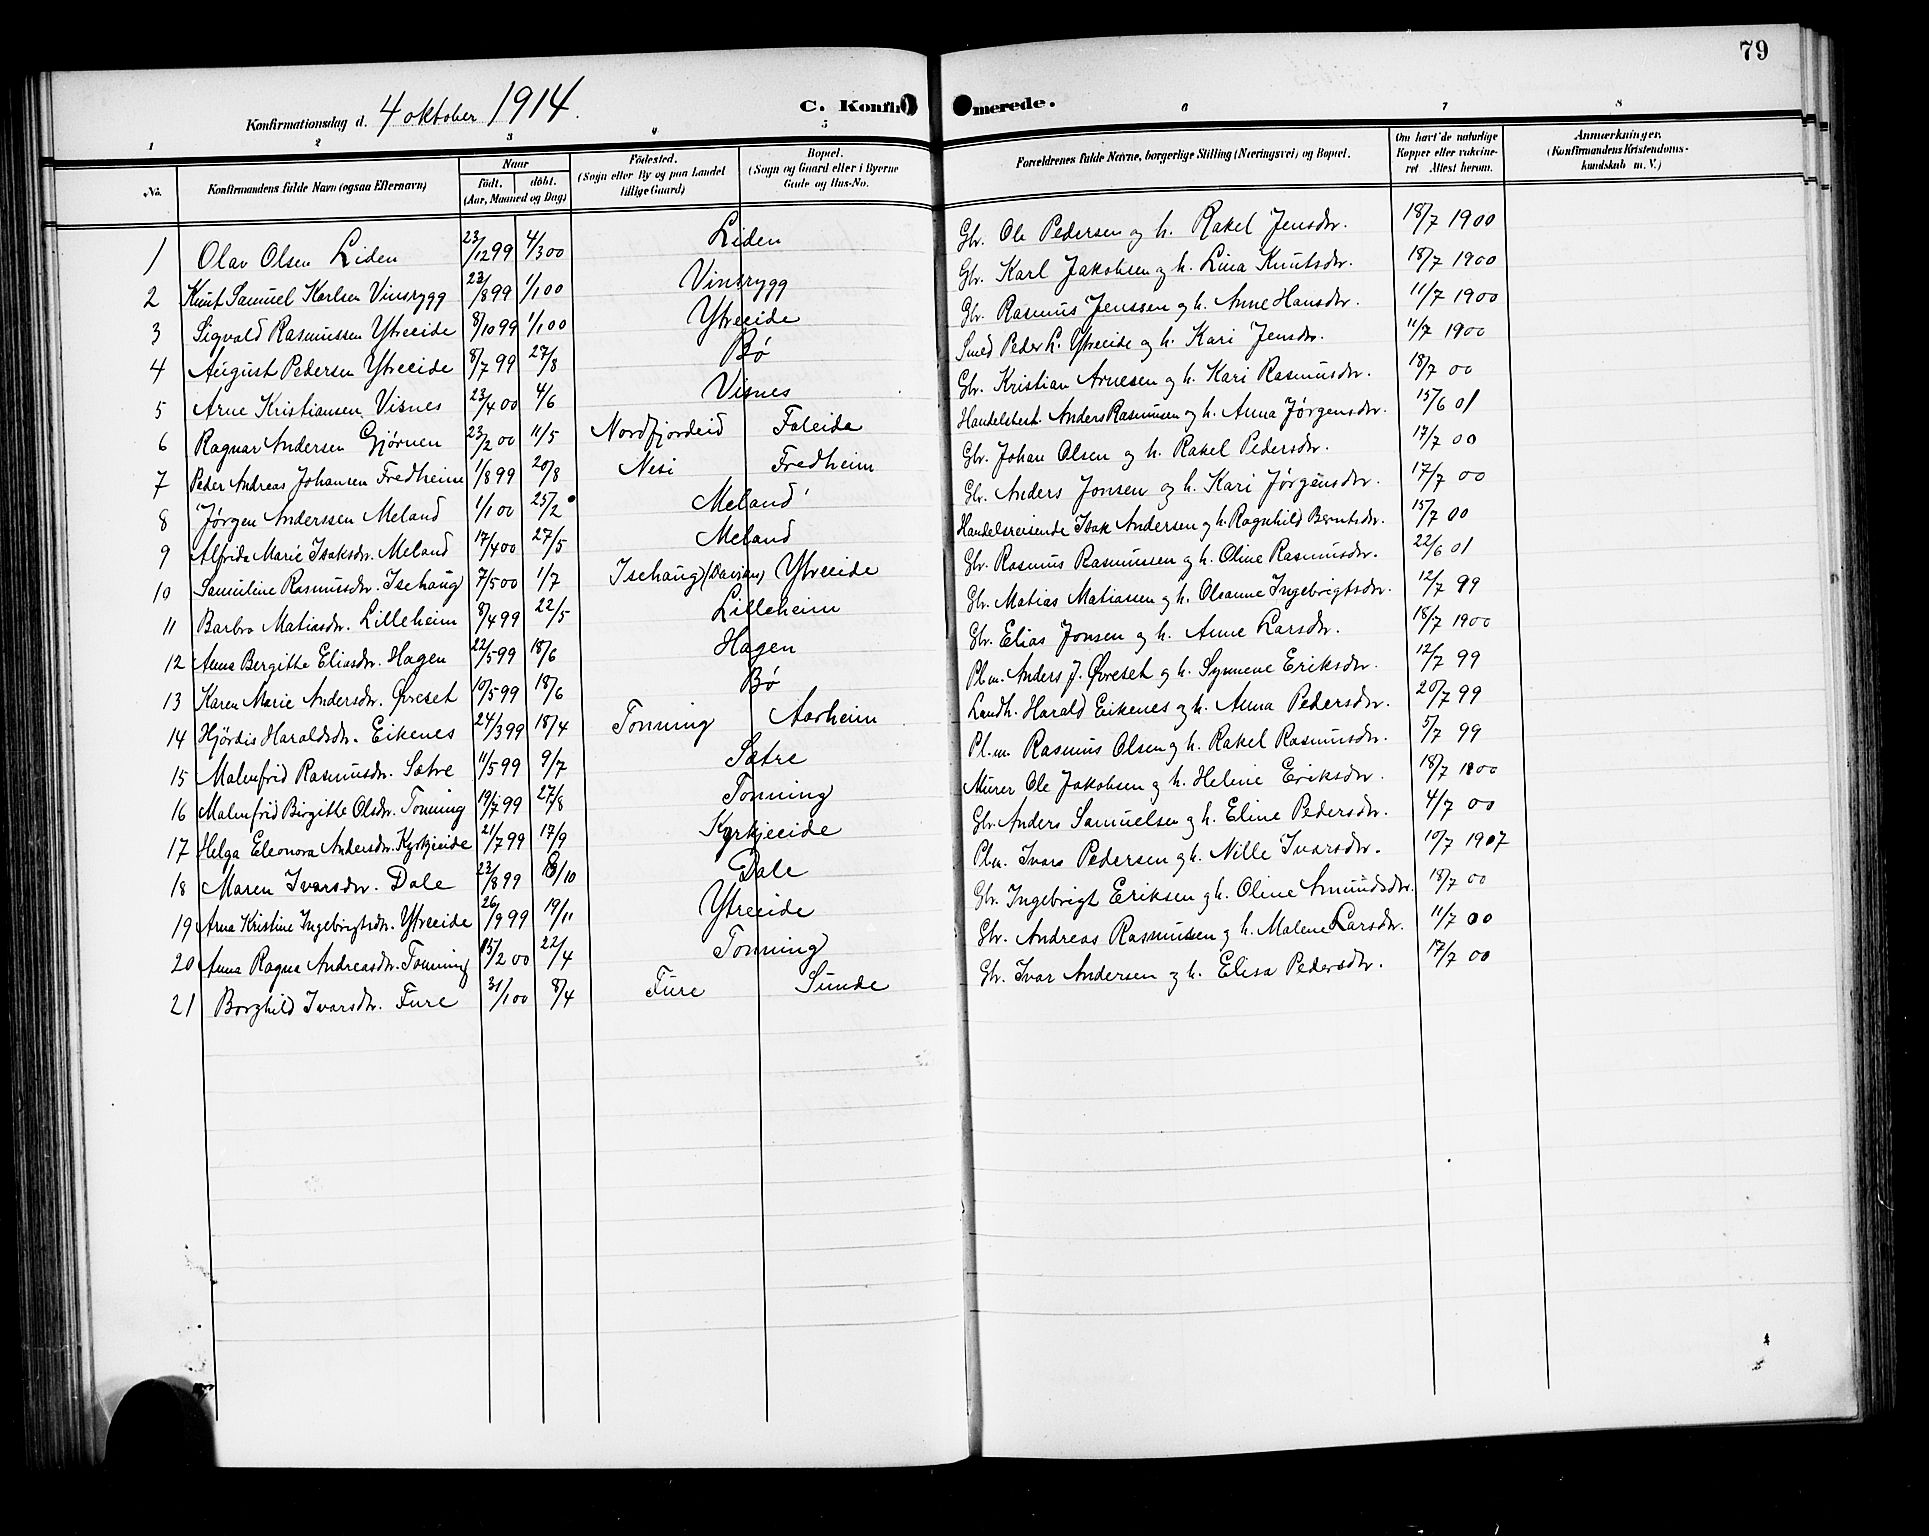 79
Konfirmationsdag d. 4 oktober 1914. C. Konfirmerede.
1 2 3 4 5 6 7 8
No. Konfirmandens fulde Navn (ogsaa Efternavn) Naar født. døbt. (Aar, Maaned og Dag) Fødested. (Sogn eller By og paa Landet tillige Gaard) Bopæl. (Sogn og Gaard eller i Byerne Gade og Hus-No. Forældrenes fulde Navne, borgerlige Stilling (Næringsvei) og Bopæl. Om havt de naturlige Kopper eller vaksineret Attest herom. Anmærkninger. (Konfirmandens Kristendomskundskab m. V.)
1 Olav Olsen Liden 23/12 99 4/3 00 Liden Gbr. Ole Pedersen og h. Rakel Jensdr. 18/7 1900
2 Knut Samuel Karlsen Vinsrygg 23/8 99 1/1 00 Vinsrygg Gbr. Karl Jakobsen og h. Lina Knutsdr. 18/7 1900
3 Sigvald Rasmussen Ytreeide 8/10 99 1/1 00 Ytreeide Gbr. Rasmus Jenssen og h. Anne Hansdr. 11/7 1900
4 August Pedersen Ytreeide 8/7 99 27/8 Bø Smed Peder L. Ytreeide og h. Kari Jensdr. 11/7 1900
5 Arne Kristiansen Visnes 23/4 00 4/6 Visnes Gbr. Kristian Arnesen og h. Kari Rasmusdr. 18/7 00
6 Ragnar Andersen Gjørven 23/2 00 11/5 Nordfjordeid Faleide Handelsbest. Anders Rasmusen og h. Anna Jørgensdr. 15/6 01
7 Peder Andreas Johansen Fredheim 1/8 99 20/8 Nesi Fredheim Gbr. Johan Olsen og h. Rakel Pedersdr. 17/7 00
8 Jørgen Anderssen Meland 1/1 00 25/2 Meland Gbr. Anders Jonsen og h. Kari Jørgensdr. 17/7 00
9 Alfrida Marie Isaksdr. Meland 17/4 00 27/5 Meland Handelsreisende Isak Andersen og h. Ragnhild Berntsdr. 15/7 00
10 Samuline Rasmusdr. Isehaug 7/5 00 1/7 Isehaug (Daviken) Ytreeide Gbr. Rasmus Rasmussen og h. Oline Rasmusdr. 22/6 01
11 Barbro Matiasdr. Lilleheim 8/4 99 22/5 Lilleheim Gbr. Matias Matiassen og h. Olsanne Ingebrigtsdr. 12/7 99
12 Anna Bergithe Eliasdr. Hagen 22/5 99 18/6 Hagen Gbr. Elias Jonsen og h. Anne Larsdr. 18/7 1900
13 Karen Marie Andersdr. Øvreset 10/5 99 18/6 Bø Plm. Anders J. Øvreset og h. Synneve Eriksdr. 12/7 99
14 Hjördis Haraldsdr. Eikenes 24/3 99 18/4 Tonning Aarheim Landh. Harald Eikenes og h. Anna Pedersdr. 20/7 99
15 Malmfrid Rasmusdr. Sætre 11/5 99 9/7 Sætre Pl.m. Rasmus Olsen og h. Rakel Rasmusdr. 5/7 99
16 Malmfrid Birgitte Olsdr. Tonning 19/7 99 27/8 Tonning Murer Ole Jakobsen og h. Heline Eriksdr. 18/7 1800
17 Helga Eleonora Andersdr. Kyrkjeeide 21/7 99 17/9 Kyrkjeeide Gbr. Anders Samuelsen og h. Eline Pedersdr. 4/7 00
18 Maren Ivarsdr. Dale 23/8 99 8/10 Dale Plm. Ivars Pedersen og h. Nille Ivarsdr. 10/7 1907
19 Arna Kristine Ingebrigtsdr. Ytreeide 26/9 99 19/11 Ytreeide Gbr. Ingebrigt Eriksen og h. Oline Amundsdr. 18/7 00
20 Anna Ragna Andreasdr. Tonning 15/2 00 22/4 Tonning Gbr. Andreas Rasmussen og h. Malene Larsdr. 11/7 00
21 Borghild Ivarsdr. Fure 31/1 00 8/4 Fure Sunde Gbr. Ivar Andersen og h. Elisa Pedersdr. 17/7 00